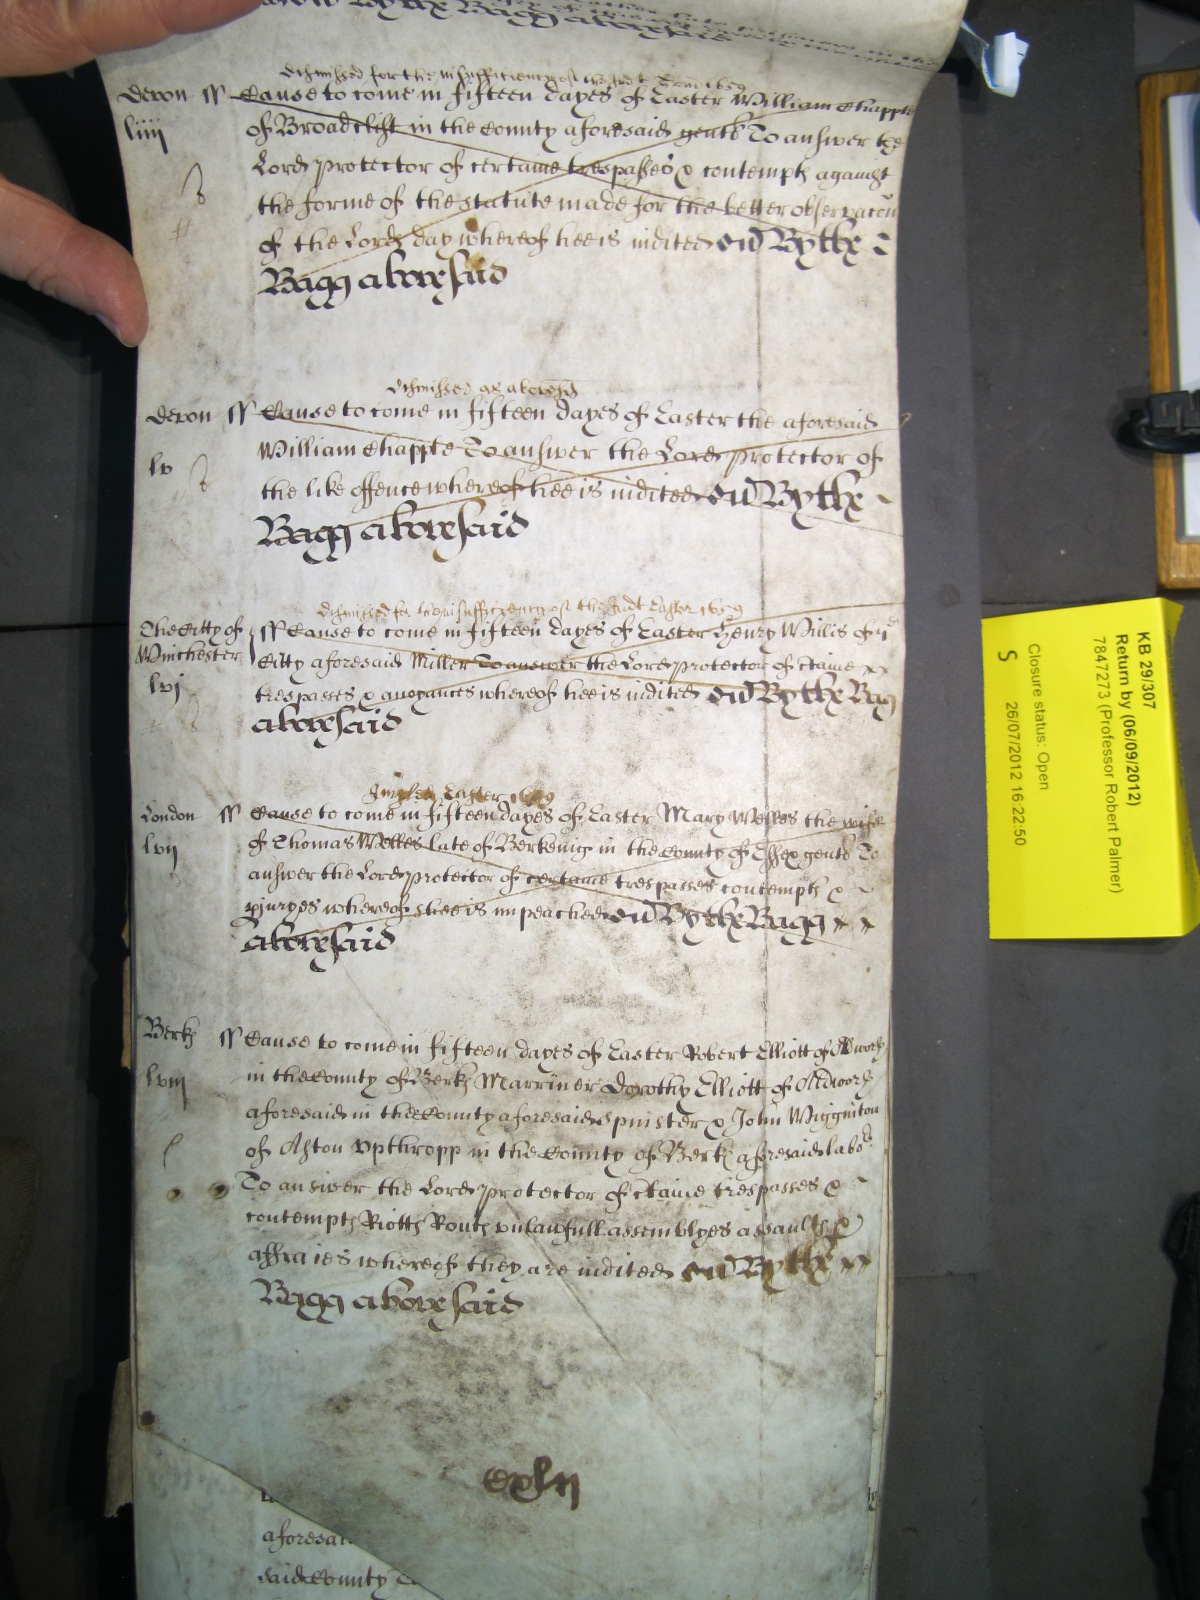 Bagg abovesaid
dismissed for the insufficiency of the 1659
devon ss Cause to come in fifteen dayes of Easter William Chapple
liiij
of Broadclist in the County aforesaid gent To answer the
Lord Protector of certaine trespasses & contempts against
the forme of the statute made for the better observacon
of the Lords day whereof hee is indited Bythe
Bagg abovesaid
dismissed as abovesd
devon ss Cause to come in fifteen dayes of Easter the aforesaid
William Chapple To answer the Lord Protector of
lv
the like offence whereof hee is indited Bythe
Bagg abovesaid
dismissed for the insufficiency of the Indt Easter 1659
The Citty of ss Cause to come in fifteen dayes of Easter Henry Willis of ye
Winchester
Citty aforesaid Miller To answer the Lord Protector of ctaine
lvj
trespasses & anoyances whereof hee is indited Bythe Bagg
abovesaid
Easter 1659
London ss Cause to come in fifteen dayes of Easter Mary Welles the wife
lvij
of Thomas Welles late of Berkeing in the County of Essex gent To
answer the Lord Protector of certaine trespasses contempts &
pjuryes whereof shee is impeached Bythe Bagg
abovesaid
Berks ss Cause to come in fifteen dayes of Easter Robert Elliott of Aldworth
lviij
in the County of Berks Marriner Dorothy Elliott of Aldworth
aforesaid in the County aforesaid spinster & John Wigginton
of Aston Vpthropp in the County of Berks aforesaid labor
To answer the Lord Protector of ctaine trespasses &
contempts Riotts Routs vnlawfull assemblyes assaults &
affraies whereof they are indited Bythe
Bagg abovesaid
cxlij
aforesai
said County
KB 29/307
Return by (06/09/2012)
7847273 (Professor Robert Palmer)
Closure status: Open
S 26/07/2012 16:22:50